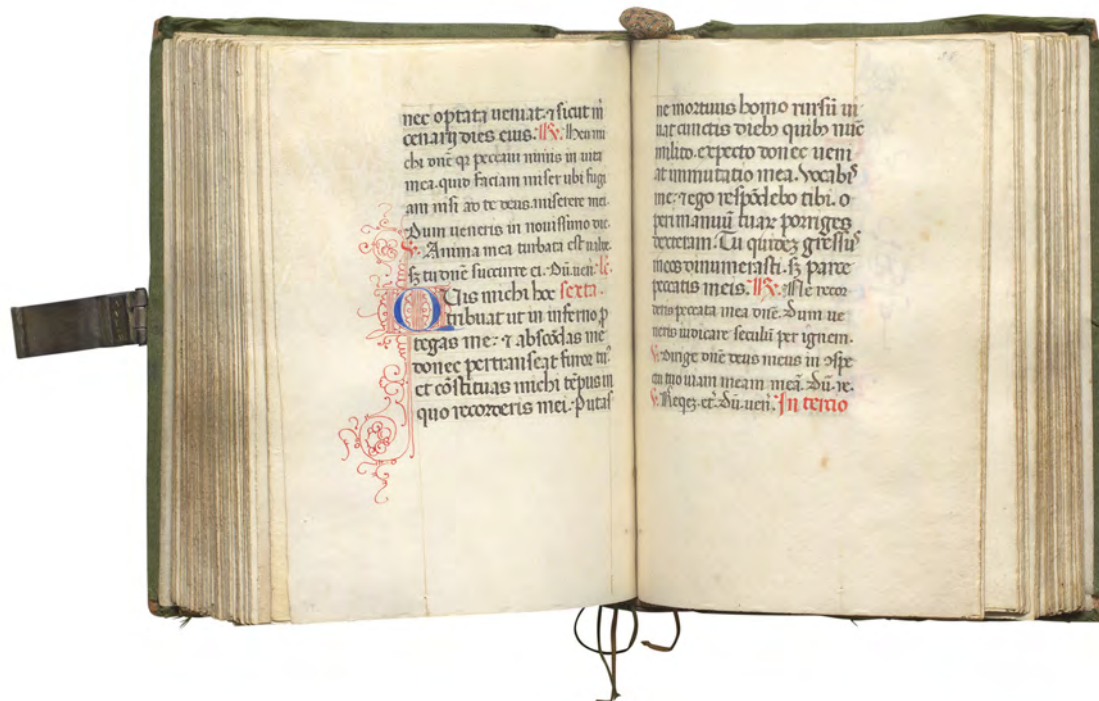 nec optata ueniat. ⁊ sicut m̄
cenarij dies eius. ℟. Heu mi
chi dn̄e q̢ peccaui nimis in uita
mea. quid faciam miser ubi fugi
am nisi ad te deus. miserere mei.
Dum ueneris in nouissimo die.
℣. Anima mea turbata est ualde.
sꝫ tu dn̄e succurre ei. Dū. uen̄. lc̄.
Quis michi hoc sexta.
tribuat ut in inferno ꝓ
tegas me: ⁊ abscōdas me
donec pertranseat furor tu᷒.
et cōstituas michi tēpus in
quo recorderis mei. Putas
ne mortuus homo rursū ui
uat cunctis diebꝫ quibꝫ nūc
milito. expecto donec ueni
at immutatio mea. Vocabis
me: ⁊ ego respōdebo tibi. o
peri manuū tuaꝝ porriges
dexteram. Tu quidez gressus
meos dinumerasti. sꝫ parce
peccatis meis. ℟. Ne recor
deris peccata mea dn̄e. Dum ue
neris iudicare seculū per ignem.
℣. Dirige dn̄e deus meus in ↄspe
ctu tuo uiam meam meā. Dū. ue.
℣. Reqez. et̄. Dū. uen̄. In tercio